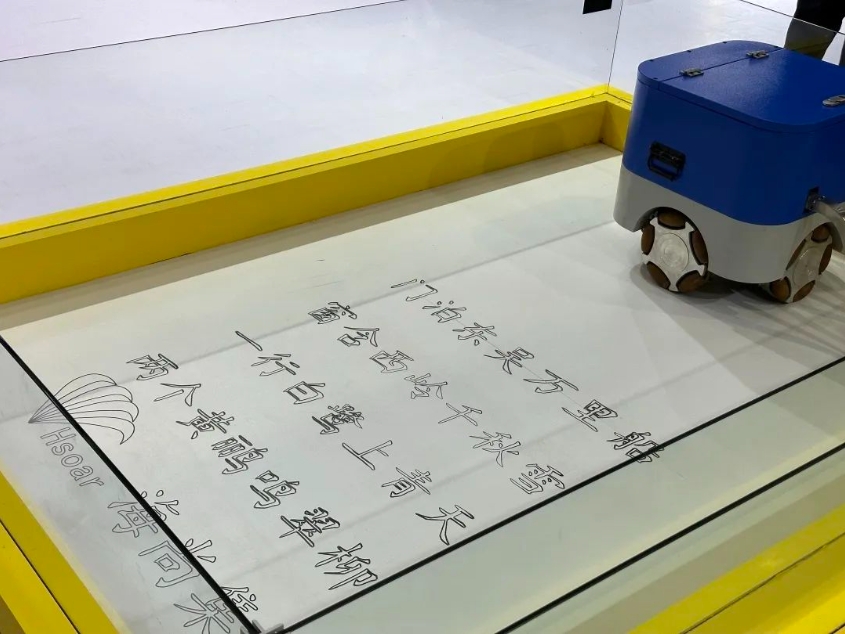 Hsoar
两个黄鹂鸣翠柳
一行白鹭上青天
窗含西岭千秋雪
门泊东吴万里船